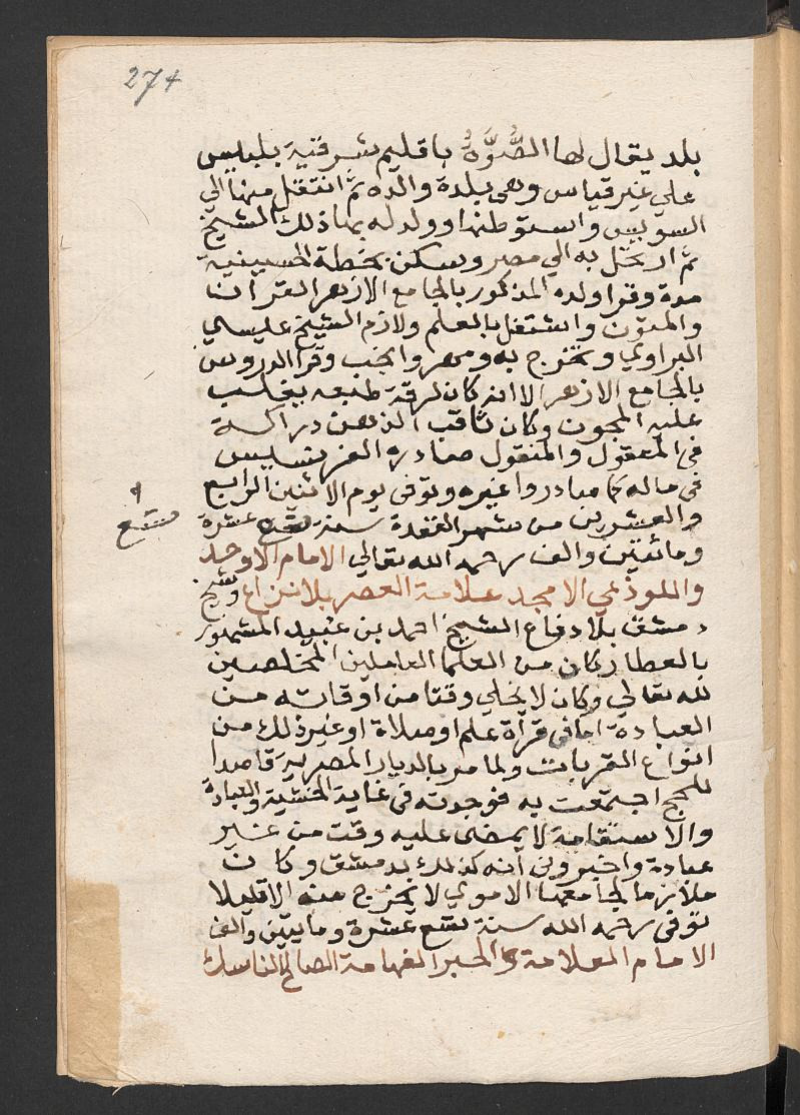 274
بلد يقال لها الصُّوَّهُ باقليم شرقية بلبيس
علي غير قياس وهي بلدة والده ثم انتقل منها الي
السويس واستوطنها وولد له بها ذلك الشيخ
ثم ارتحل به الي مصر وسكن بخطة الحسينية
مدة وقرا ولده المذكور بالجامع الازهر القران
والمتون واشتغل بالعلم ولازم الشيخ عليسي
البراوي وتخرج به ومهر وانجب وقرا الدروس
بالجامع الازهر الا انه كان لرقة طبعه يغلب
عليه المجون وكان ثاقب الذهن دراكة
في المعقول والمنقول صادره الفرنسيس
في ماله كما صادروا غيره وتوفي يوم الاثنين الرابع
والعشرين من شهر القعدة سنة تسع عشرة
تسع
ومائتين والف رحمه الله تعالي الامام الاوحد
واللوذعي الامجد علامة العصر بلا نزاع وشيخ
دمشق بلا دفاع الشيخ احمد بن عبيد المشهور
بالعطار كان من العلما العاملين المخلصين
لله تعالي وكان لا يخلي وقتا من اوقاته من
العبادة اما في قرأة علم او صلاة او غير ذلك من
انواع القربات ولما مر بالديار المصرية قاصدا
للحج اجتمعت به فوجدته في غاية الخشية والعبادة
والاستقامة لا يمضي عليه وقت من غير
عبادة واخبروني انه كذلك بدمشق وكان
ملازما لجامعها الاموي لا يخرج منه الا قليلا
توفي رحمه الله سنة تسع عشرة ومايتين والف
الامام العلامة والحبر الفهامة الصالح الناسك